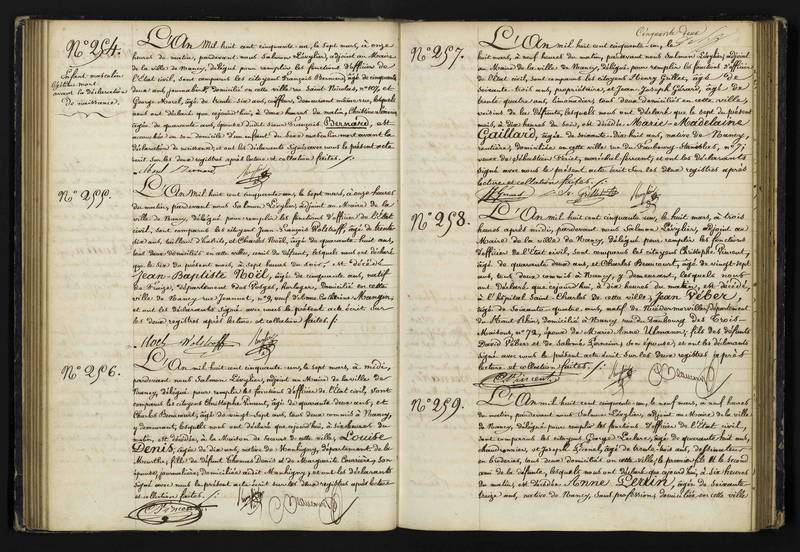 N.° 254.
Enfant masculin
avant la déclaration
de naissance.
L'An mil huit cent cinquante-un, le sept mars, à onze
heures du matin, pardevant nous Salmon Lévylier, adjoint au Maire
de la ville de Nancy, délégué pour remplir les fonctions d'officier de
l'État civil, sont comparus les citoyens François Bernard, âgé de cinquante
deux ans, journalier, domicilié en cette ville rue Saint Nicolas, n.° 107, et
George Morel, âgé de trente six ans, coiffeur, demeurant même rue, lesquels
nous ont déclaré que cejourd'hui, à deux heures du matin, Christine
âgée de quarante ans, épouse dudit sieur François Bernard, est
accouchée en son domicile d'un enfant du sexe masculin mort avant la
déclaration de naissance, et ont les déclarants signé avec nous le présent acte
écrit sur les deux registres après lecture et collation faites.
Morel Bernard
N.° 255.
L'An mil huit cent cinquante-un, le sept mars, à onze heures
du matin, pardevant nous Salmon Lévylier, adjoint au Maire de la
ville de Nancy, délégué pour remplir les fonctions d'officier de l'État
civil, sont comparus les citoyens Jean-François âgé de trente
six ans, tailleur d'habits, et Charles Noël, âgé de quarante-huit ans,
tous deux domiciliés en cette ville, lesquels nous ont déclaré
que le six du présent mois, à sept heures du soir, est décédé
Jean-Baptiste Noël, âgé de cinquante ans, natif
département des Vosges, horloger, domicilié en cette
ville de Nancy rue Jeannot, n.° 9, veuf d'Anne Catherine Mangin,
et ont les déclarants signé avec nous le présent acte écrit sur
les deux registres après lecture et collation faites.
Noël
N.° 256.
L'An mil huit cent cinquante-un, le sept mars, à midi,
pardevant nous Salmon Lévylier, adjoint au Maire de la ville de
Nancy, délégué pour remplir les fonctions d'officier de l'État civil, sont
comparus les citoyens Christophe Pincent, âgé de quarante deux ans, et
Charles Bancourt, âgé de vingt-sept ans, tous deux commis à Nancy,
y demeurant, lesquels nous ont déclaré que cejourd'hui, à six heures du
matin, est décédée, à la Maison de secours de cette ville, Louise
Denis, âgée de dix ans, native de département de la
Meurthe, fille de défunt Thomas Denis et de Marguerite son
épouse, journalière, domiciliée audit et ont les déclarants
signé avec nous le présent acte écrit sur les deux registres après lecture
et collation faites.
Cinquante deux
N.° 257.
L'An mil huit cent cinquante-un, le
huit mars, à neuf heures du matin, pardevant nous Salmon Lévylier, adjoint
au Maire de la ville de Nancy, délégué pour remplir les fonctions d'officier
de l'État civil, sont comparus les citoyens Henry Gullet, âgé de
soixante-trois ans, propriétaire, et Jean-Joseph Gérard, âgé de
trente quatre ans, limonadier, tous deux domiciliés en cette ville,
voisins de la défunte, lesquels nous ont déclaré que le sept du présent
mois, à dix heures du soir, est décédée Marie-Madelaine
Gaillard, âgée de soixante-dix huit ans, native de Nancy,
rentière, domiciliée en cette ville rue du faubourg n.° 7,
veuve de Sébastien et ont les déclarants
signé avec nous le présent acte écrit sur les deux registres après
lecture et collation faites.
N.° 258.
L'An mil huit cent cinquante un, le huit mars, à trois
heures après midi, pardevant nous Salmon Lévylier, adjoint au
Maire de la ville de Nancy, délégué pour remplir les fonctions
d'officier de l'État civil, sont comparus les citoyens Christophe Pincent,
âgé de quarante deux ans, et Charles Bancourt, âgé de vingt-sept
ans, tous deux commis à Nancy, y demeurant, lesquels nous
ont déclaré que cejourd'hui, à dix heures du matin, est décédé,
à l'hôpital Saint-Charles de cette ville, Jean Véber,
âgé de soixante-quatre ans, natif de Niedermorviller, département
du Haut-Rhin, domicilié à Nancy rue du faubourg des Trois
Maisons, n.° 72, époux de Marie Anne fils des défunts
David Véber et de Salomé son épouse, et ont les déclarants
signé avec nous le présent acte écrit sur les deux registres après
lecture et collation faites.
N.° 259.
L'An mil huit cent cinquante-un, le neuf mars, à neuf heures
du matin, pardevant nous Salmon Lévylier, adjoint au Maire de la ville
de Nancy, délégué pour remplir les fonctions d'officier de l'État civil,
sont comparus les citoyens George âgé de quarante-huit ans,
et Joseph âgé de trente-six ans,
en broderies, tous deux domiciliés en cette ville, le premier fils et le second
ami de la défunte, lesquels nous ont déclaré que cejourd'hui, à six heures
du matin, est décédée Anne Perrin, âgée de soixante-
treize ans, native de Nancy, sans profession, domiciliée en cette ville